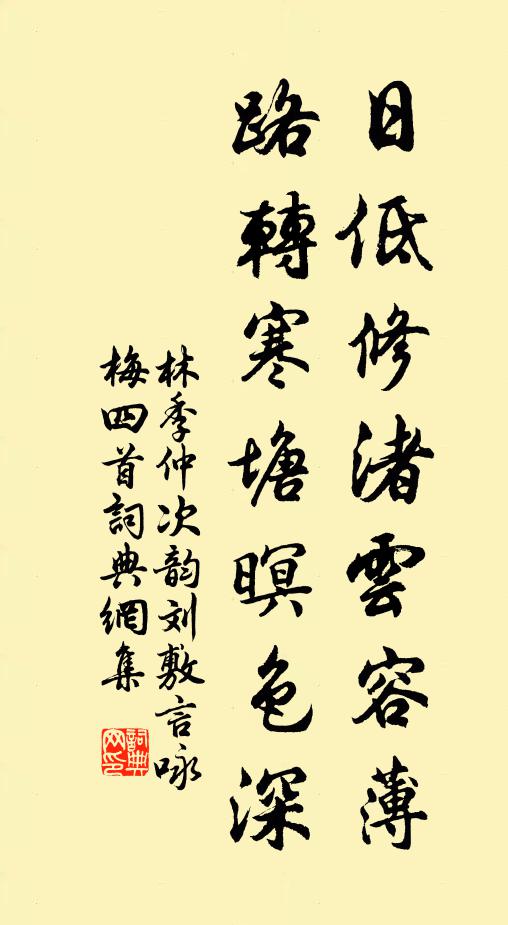 日低修渚雲容薄
路轉寒塘暝色深
林季仲次韵刘敷言咏
梅四首詞典網集
詞典
网印